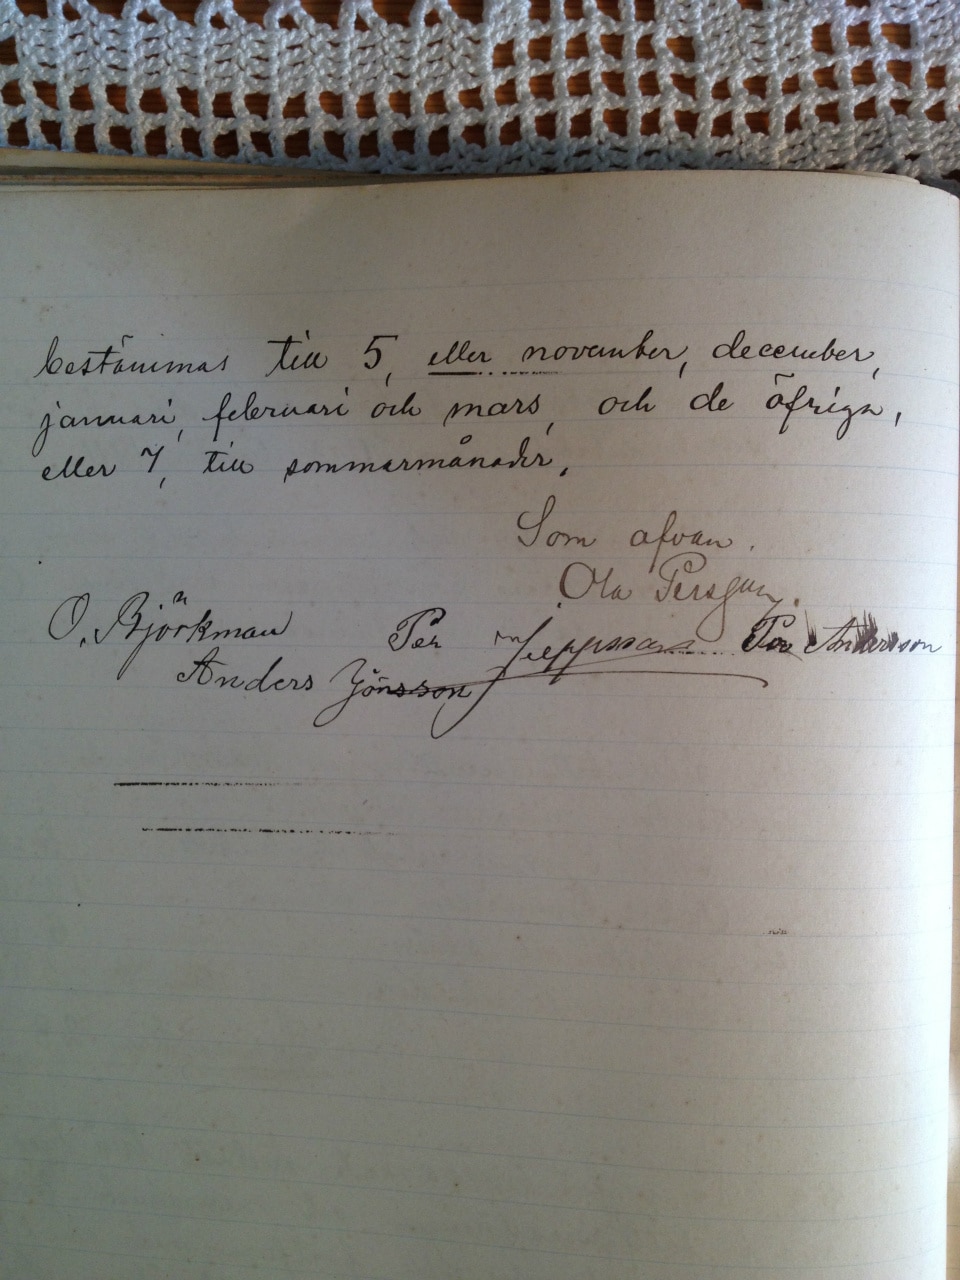 bestämmas till 5, eller november, december,
januari, februari och mars, och de öfriga,
eller 7, till sommarmånader,
Som ofvan.
Ola Persson.
O. Björkman Per Jeppsson Per Andersson
Anders Jönsson